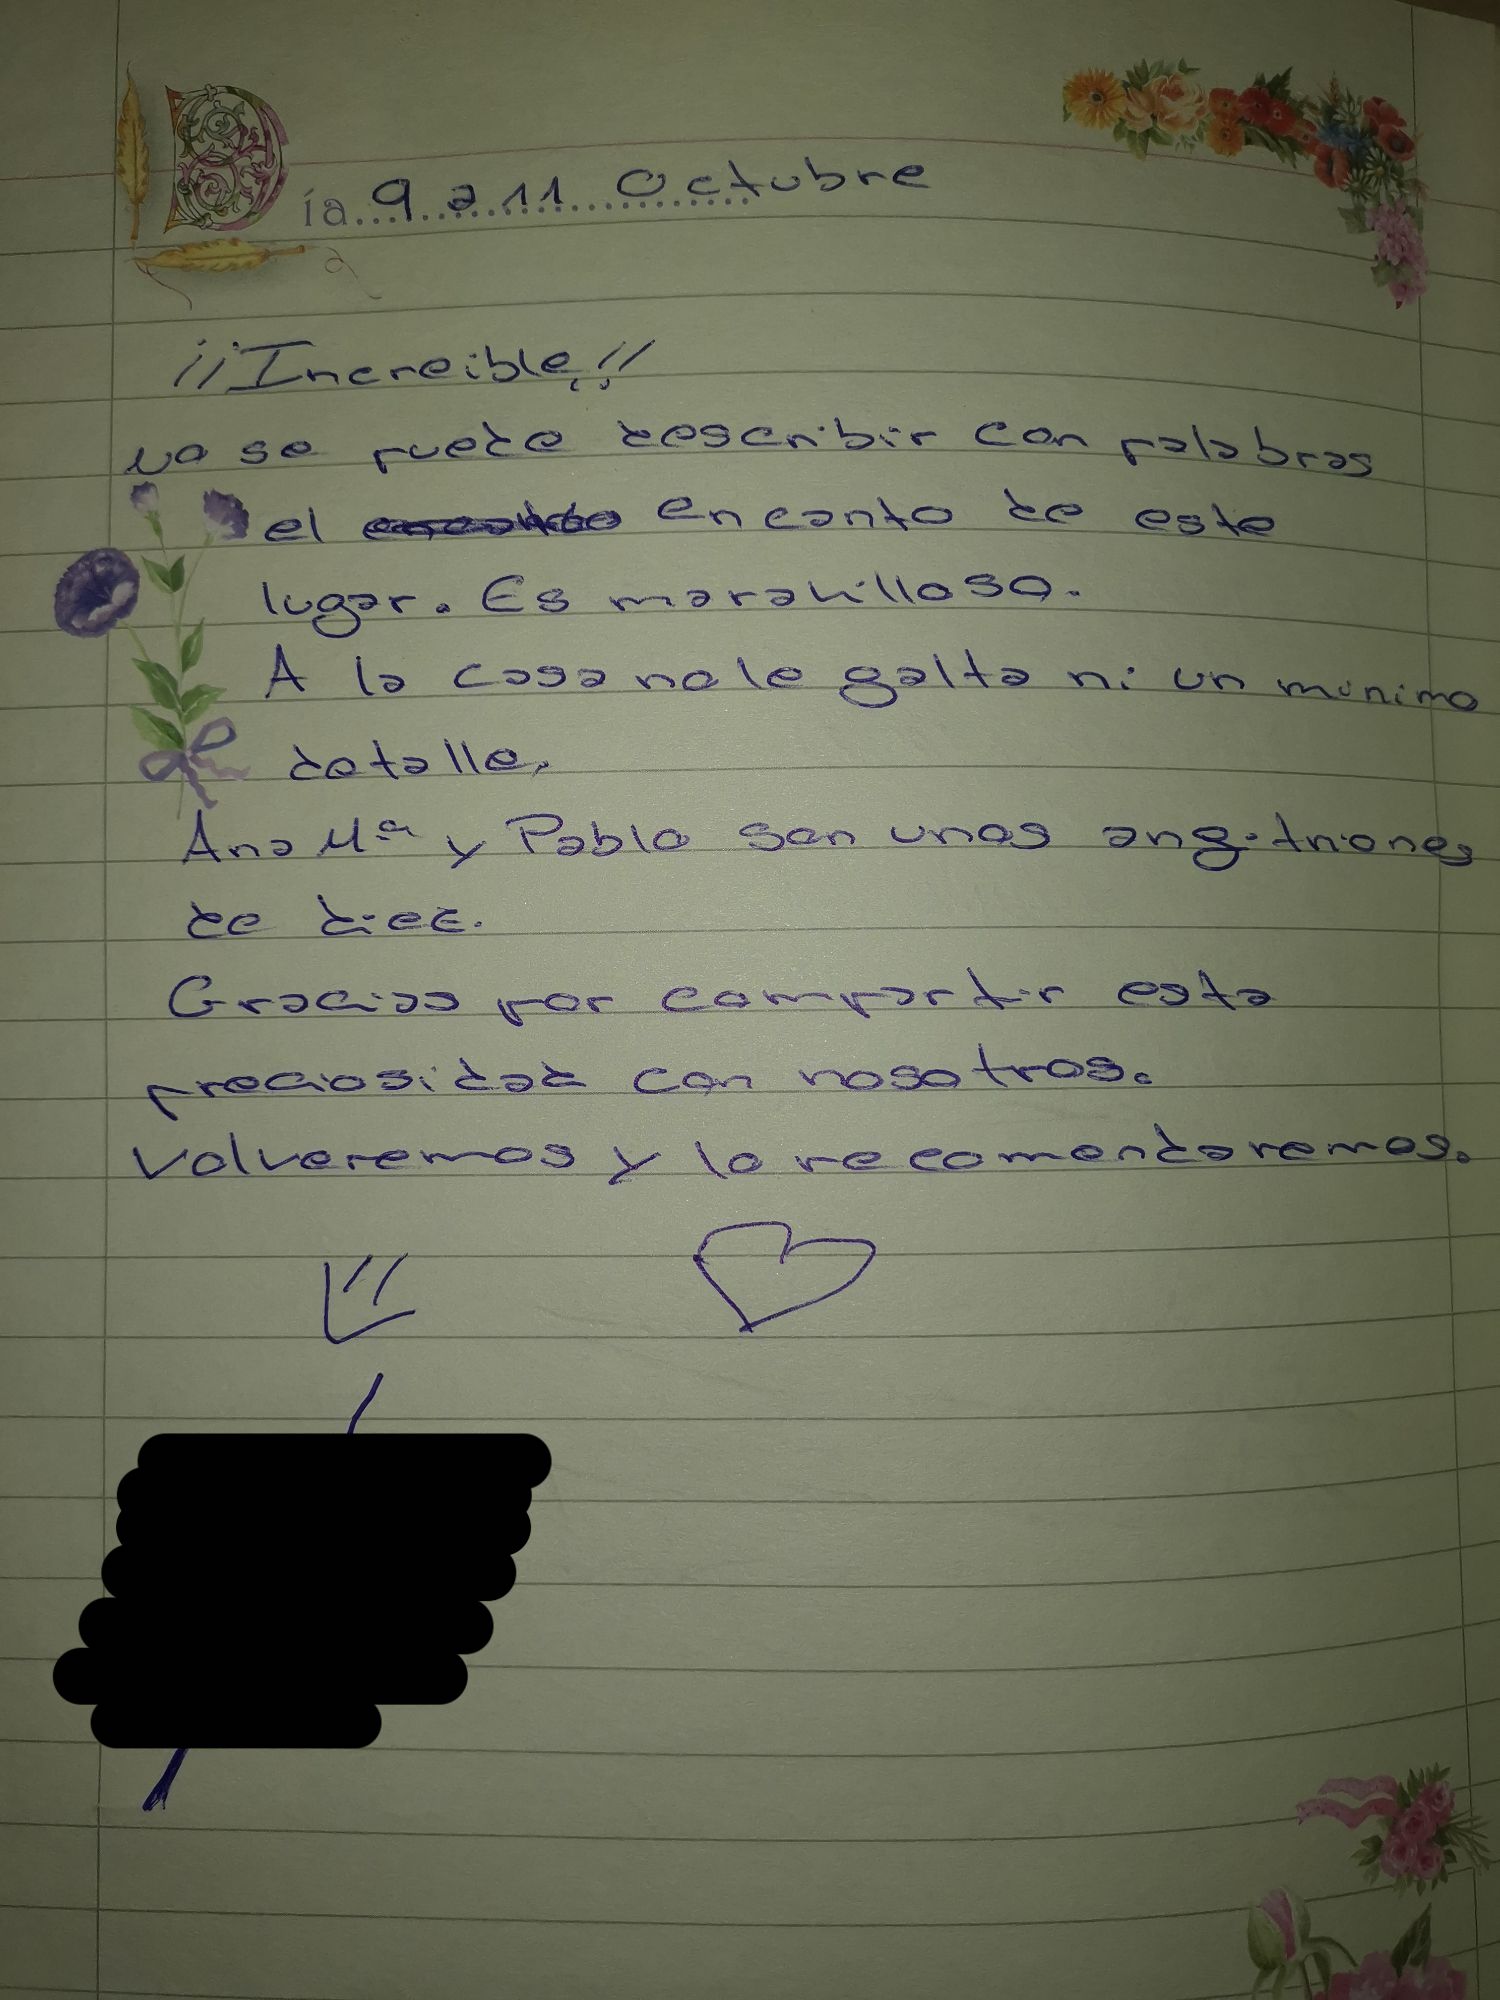 Día 9 a 11 Octubre
¡¡Increible!!
no se puede describir con palabras
el encanto de este
lugar. Es maravilloso.
A la casa no le falta ni un mínimo
detalle.
Ana Mª y Pablo son unos anfitriones
de diez.
Gracias por compartir esta
preciosidad con nosotros.
Volveremos y lo recomendaremos.